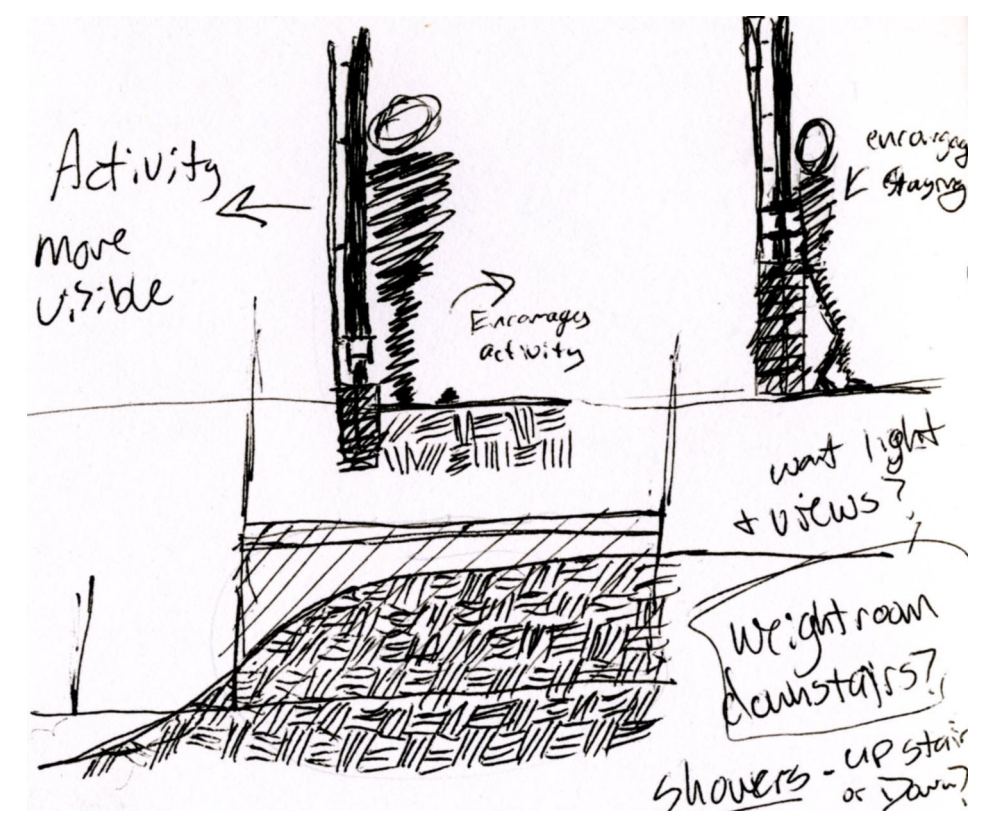 Activity
more
visible
Encourages
activity
encourag
staying
want light
+ views?
Weightroom
downstairs?
showers - upstair
or Down?